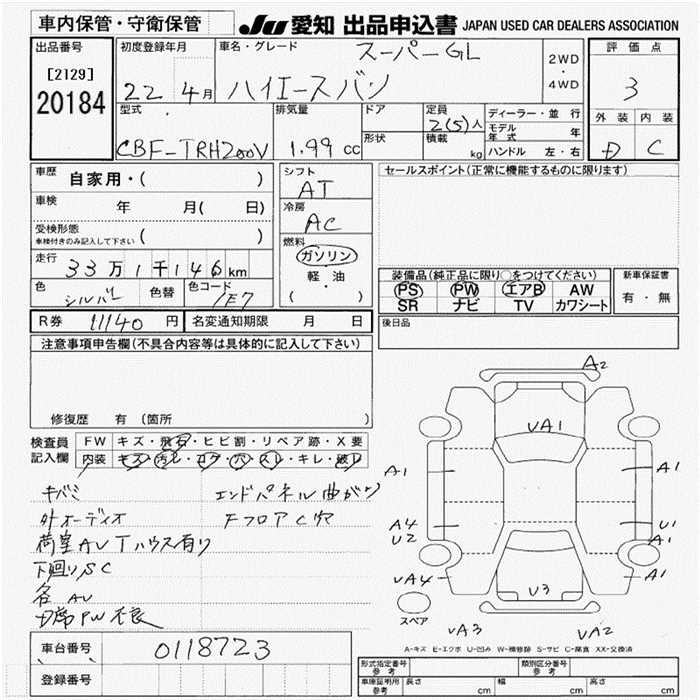 車内保管・守衛保管
JU 愛知 出品申込書 JAPAN USED CAR DEALERS ASSOCIATION
出品番号
[2129]
20184
初度登録年月
22 4月
車名・グレード
スーパーGL
ハイエースバン
2WD
・
4WD
評価点
3
外装 内装
D C
型式
CBF-TRH200V
排気量
1.99 cc
ドア
形状
定員
2(5)人
積載
kg
ディーラー・並行
モデル年式 年
ハンドル 左・右
車歴 自家用・( )
車検 年 月( 日)
受検形態
車検付きのみ記入して下さい ( )
走行 33万1千146km
色 シルバー 色替 色コード 1E7
シフト
AT
冷房
AC
燃料
ガソリン
軽・油
( )
セールスポイント(正常に機能するものに限ります)
装備品(純正品に限り○をつけてください)
PS PW エアB AW
SR ナビ TV カワシート
新車保証書
有・無
R券 11140 円 名変通知期限 月 日
後日品
注意事項申告欄(不具合内容等は具体的に記入して下さい)
修復歴 有 (箇所 )
検査員記入欄
FW キズ・飛石・ヒビ割・リペア跡・X要
内装 キズ・汚レ・コゲ・穴・スレ・キレ・破レ
キバミ エンドパネル曲がり
外オーディオ FフロアC穴
荷室AVTハウス有り
下廻りSC
各AV
D席PW不良
A2
VA1
A1 A1
A4 U1
U2 A1
VA4 A1
U3
スペア
VA3 VA2
A-キズ E-エクボ U-凹み W-補修跡 S-サビ C-腐食 XX-交換済
車台番号 0118723
登録番号
形式指定番号 参考
類別区分番号 参考
車庫証明用 参考 長さ cm 幅 cm 高さ cm